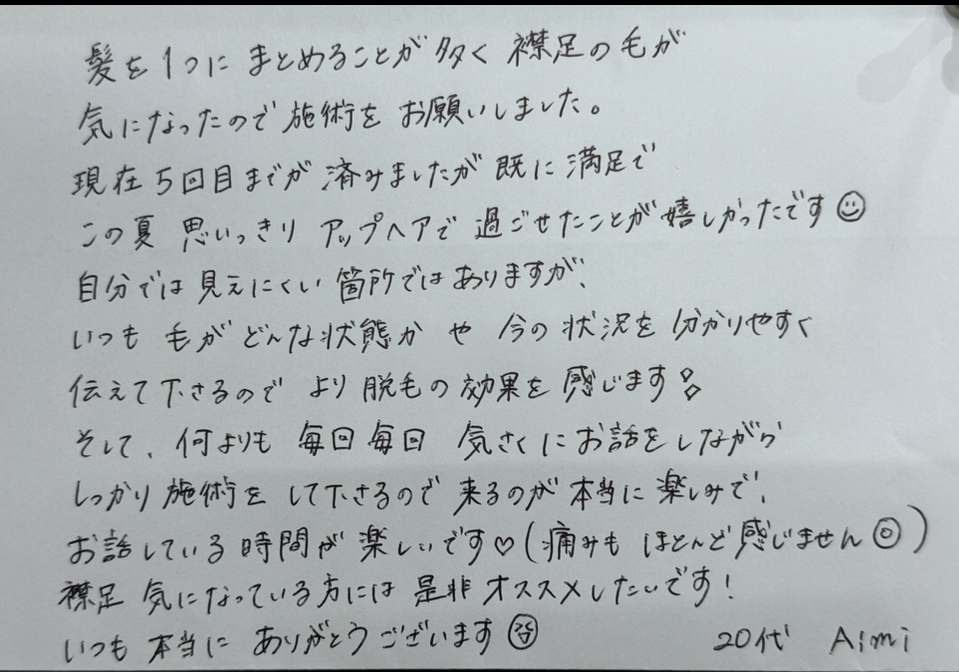 髪を1つにまとめることが多く襟足の毛が
気になったので施術をお願いしました。
現在5回目までが済みましたが既に満足で
この夏思いっきりアップヘアで過ごせたことが嬉しかったです☺
自分では見えにくい箇所ではありますが、
いつも毛がどんな状態かや今の状況を分かりやすく
伝えて下さるのでより脱毛の効果を感じます
そして、何よりも毎回毎回気さくにお話をしながら
しっかり施術をして下さるので来るのが本当に楽しみで、
お話している時間が楽しいです♡(痛みもほとんど感じません◎)
襟足気になっている方には是非オススメしたいです!
いつも本当にありがとうございます
20代 Aimi